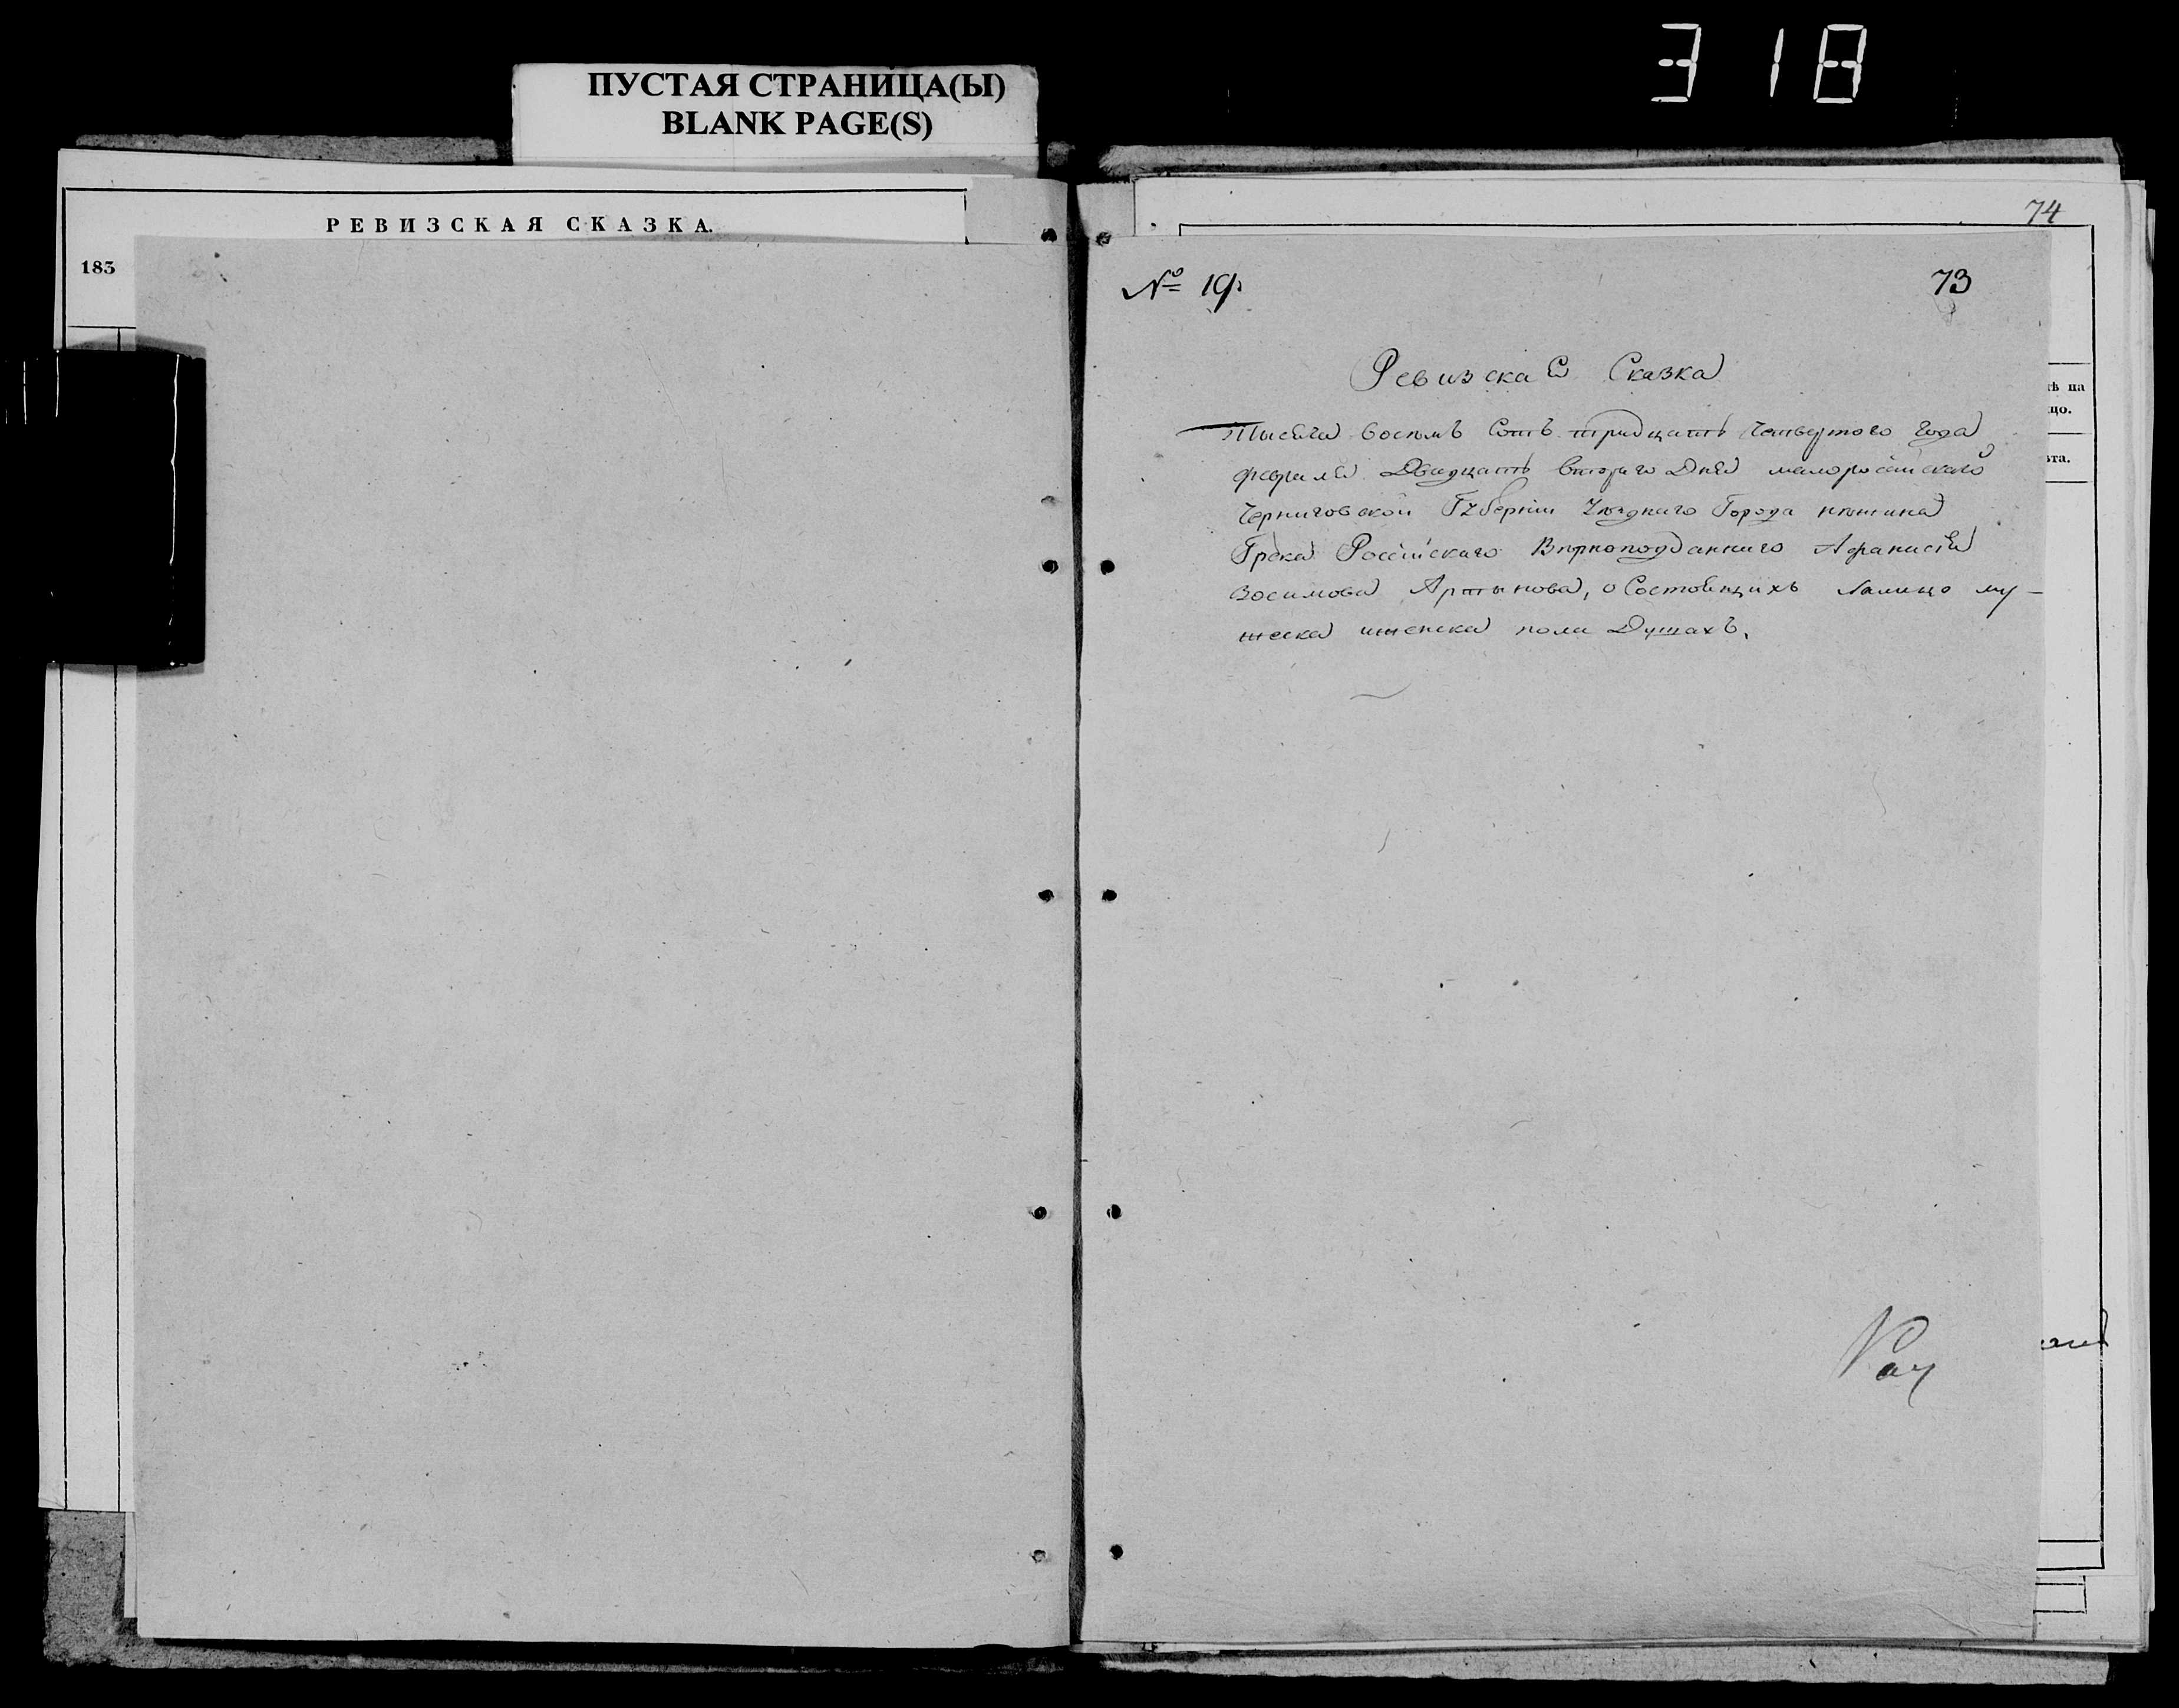 318
ПУСТАЯ СТРАНИЦА(Ы)
BLANK PAGE(S)
РЕВИЗСКАЯ СКАЗКА.
183
74
№ 19.
73
Ревизская Сказка
Тысяча восемъ Сотъ тридцать Четвертого Года
февраля Двадцать втораго Дня малоросійскаго
Черниговской Губерніи Уѣзднаго Города нѣжина
Грека Россійскаго Вѣрноподданнаго Афанасія
Зосимова Артынова, о Состоящихъ Налицо му-
жеска иженска пола Душахъ.
ѣ на
цо.
ѣта.